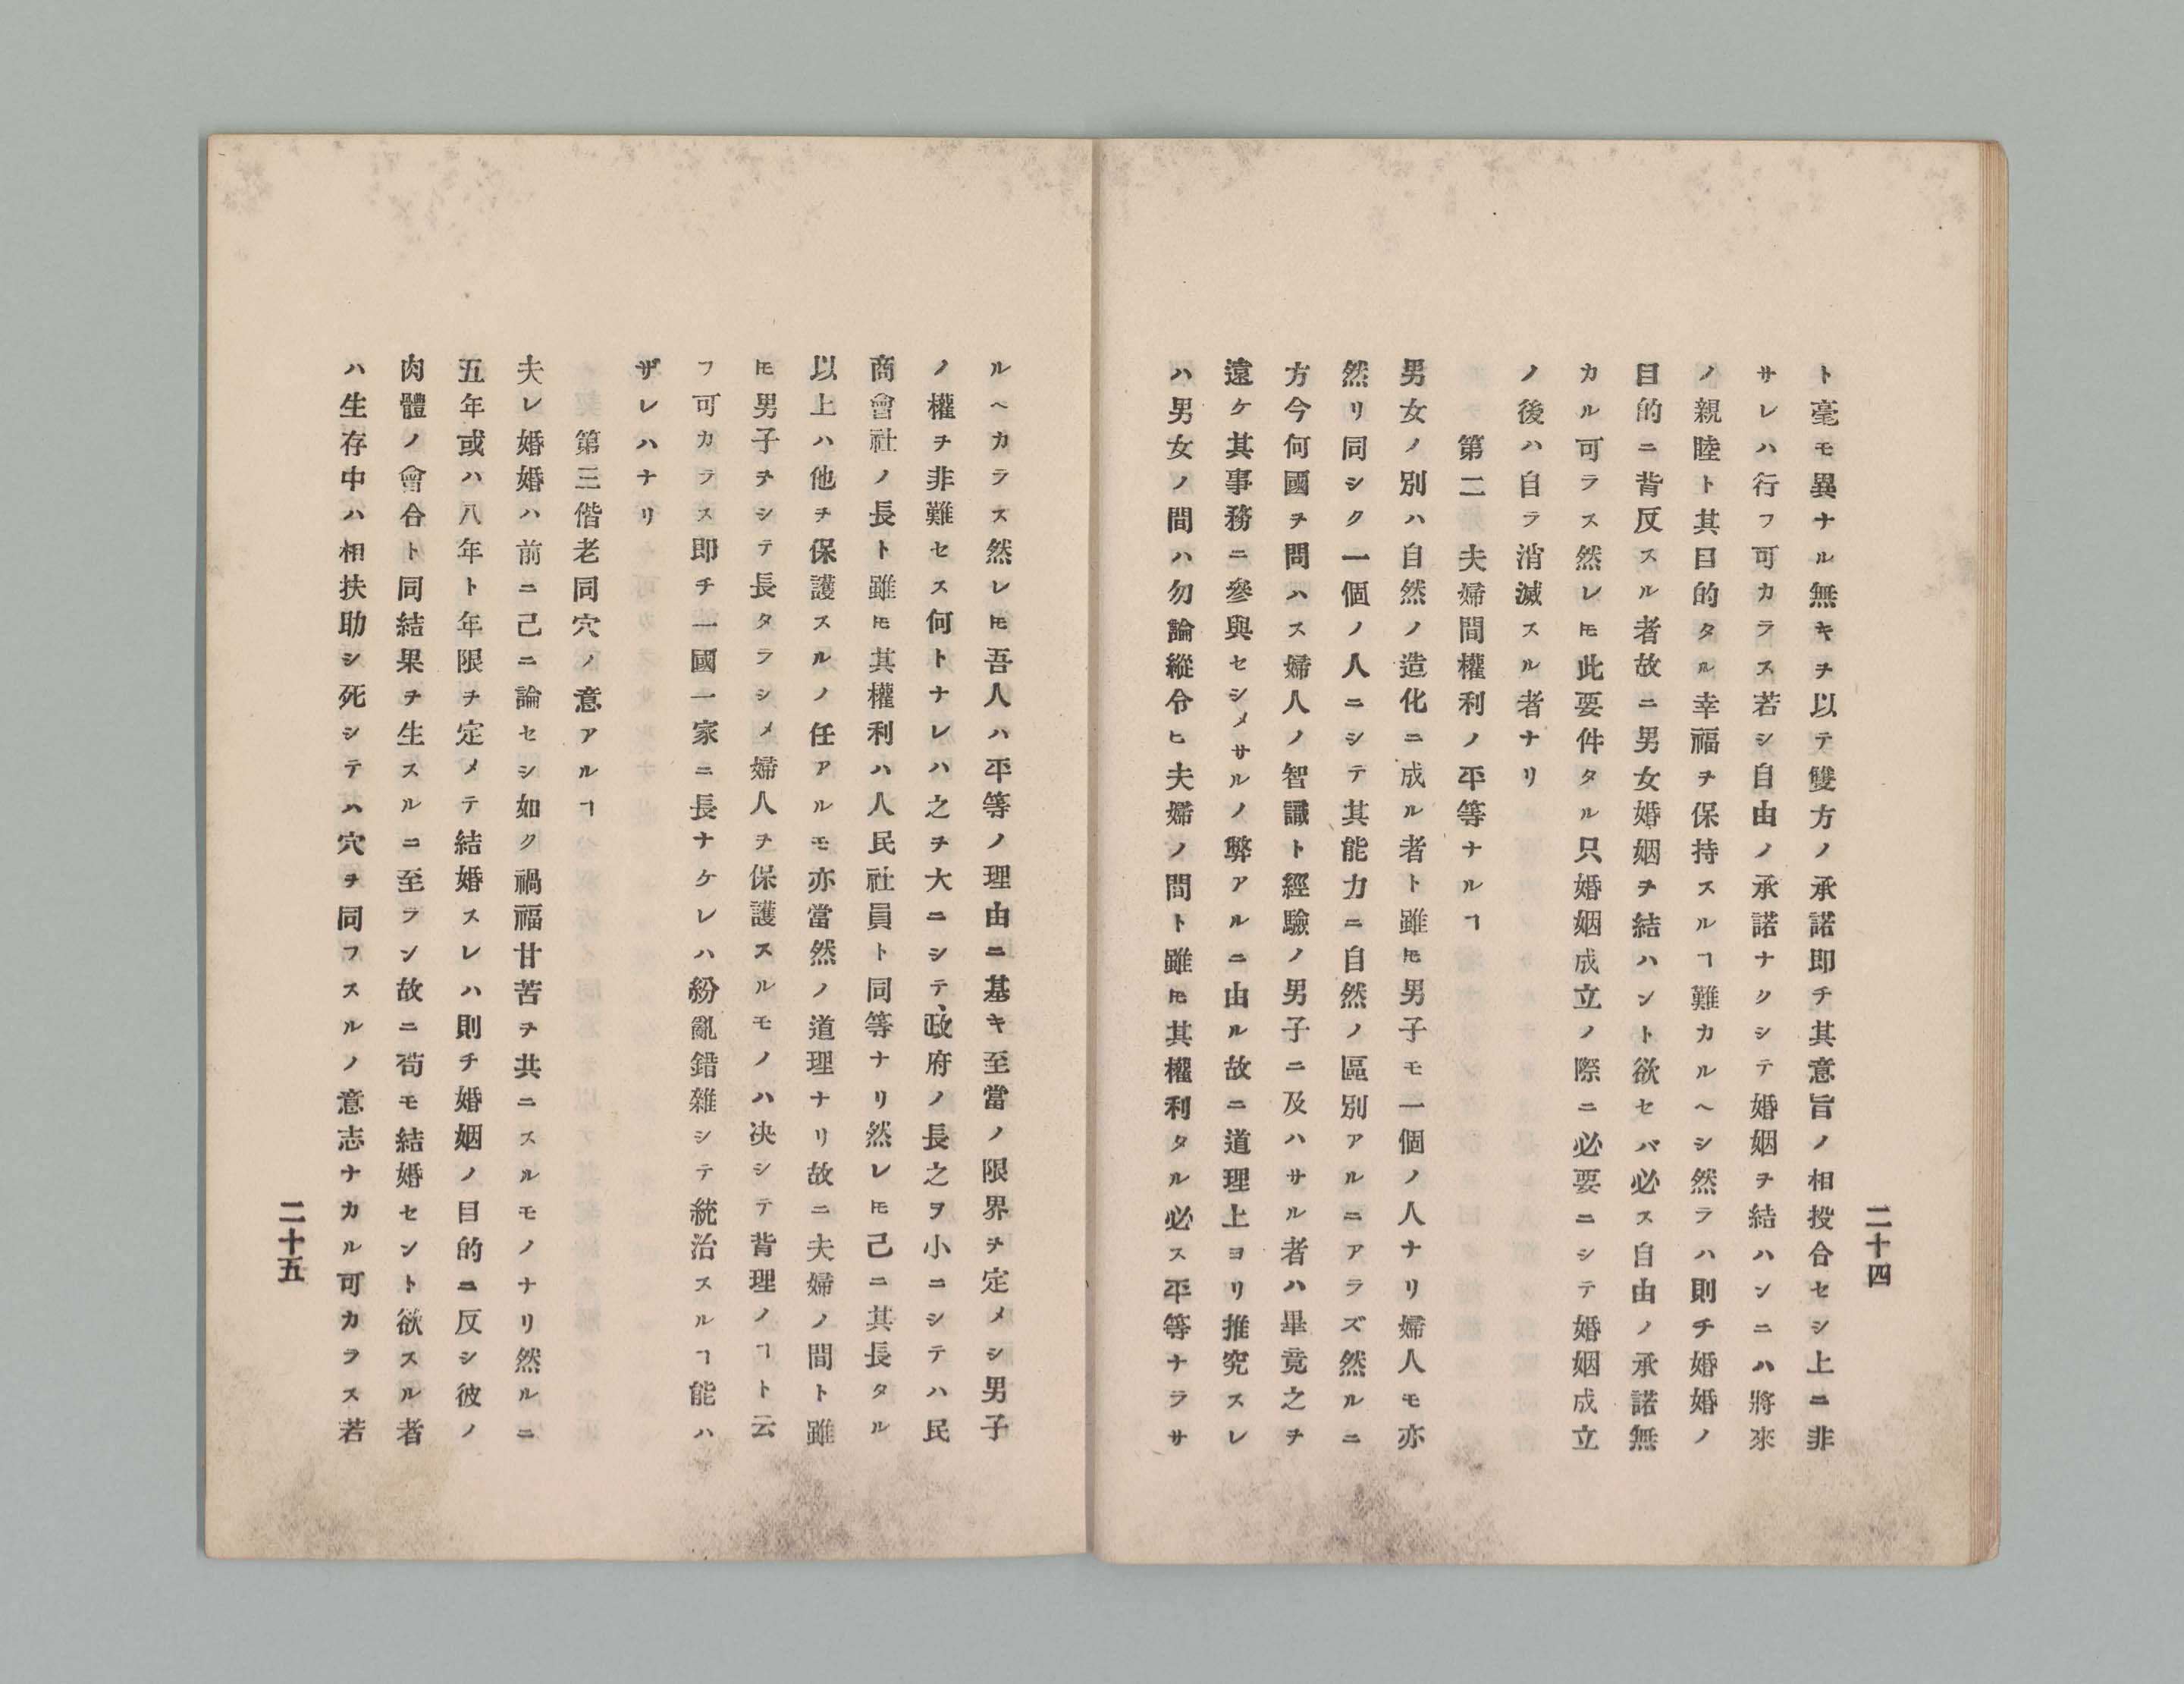 ト毫モ異ナル無キヲ以テ雙方ノ承諾即チ其意旨ノ相投合セシ上ニ非
サレハ行フ可カラス若シ自由ノ承諾ナクシテ婚姻ヲ結ハンニハ將來
ノ親陸ト其目的タル幸福ヲ保持スルヿ難カルヘシ然ラハ則チ婚婚ノ
目的ニ背反スル者故ニ男女婚姻ヲ結ハント欲セバ必ス自由ノ承諾無
カル可ラス然レ𪜈此要件タル只婚姻成立ノ際ニ必要ニシテ婚姻成立
ノ後ハ自ラ消滅スル者ナリ
第二 夫婦間權利ノ平等ナルヿ
男女ノ別ハ自然ノ造化ニ成ル者ト雖𪜈男子モ一個ノ人ナリ婦人モ亦
然リ同シク一個ノ人ニシテ其能力ニ自然ノ區別アルニアラズ然ルニ
方今何國ヲ問ハス婦人ノ智識ト經驗ノ男子ニ及ハサル者ハ畢竟之ヲ
遠ケ其事務ニ參與セシメサルノ弊アルニ由ル故ニ道理上ヨリ推究スレ
ハ男女ノ間ハ勿論縱令ヒ夫婦ノ間ト雖𪜈其權利タル必ス平等ナラサ
二十四
ルヘカラス然レ𪜈吾人ハ平等ノ理由ニ基キ至當ノ限界ヲ定メシ男子
ノ權ヲ非難セス何トナレハ之ヲ大ニシテ、政府ノ長之ヲ小ニシテハ民
商會社ノ長ト雖𪜈其權利ハ人民社員ト同等ナリ然レ𪜈己ニ其長タル
以上ハ他ヲ保護スルノ任アルモ亦當然ノ道理ナリ故ニ夫婦ノ間ト雖
𪜈男子ヲシテ長タラシメ婦人ヲ保護スルモノハ决シテ背理ノヿト云
フ可カラス即チ一國一家ニ長ナケレハ紛亂錯雜シテ統治スルヿ能ハ
ザレハナリ
第三偕老同穴ノ意アルヿ
夫レ婚婚ハ前ニ己ニ論セシ如ク禍福甘苦ヲ共ニスルモノナリ然ルニ
五年或ハ八年ト年限ヲ定メテ結婚スレハ則チ婚姻ノ目的ニ反シ彼ノ
肉體ノ會合ト同結果ヲ生スルニ至ラン故ニ苟モ結婚セント欲スル者
ハ生存中ハ相扶助シ死シテハ穴ヲ同フスルノ意志ナカル可カラス若
二十五